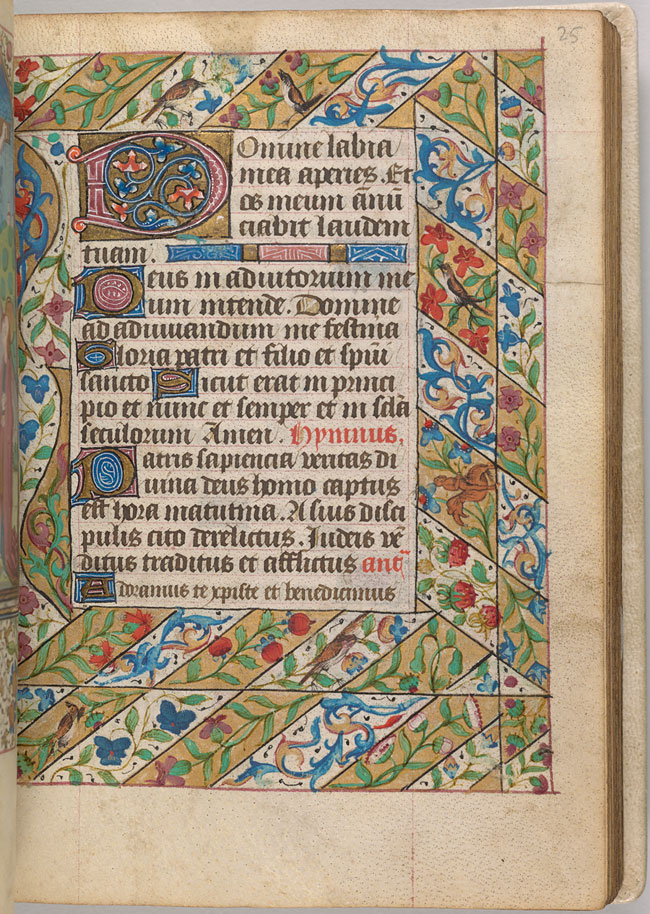 25
Domine labia
mea aperies. Et
os meum ānū
ciabit laudem
tuam.
Deus in adiutorium me
um intende. Domine
ad adiuuandum me festina
Gloria patri et filio et spūi
sancto Sicut erat in princi
pio et nunc et semper et in sc̄la
seculorum Amen. Hymnus,
Patris sapiencia veritas di
uina deus homo captus
est hora matutina. A suis disci
pulis cito derelictus. Iudeis vē
ditus traditus et afflictus anť
Adoramus te xp̄iste et benedicimus